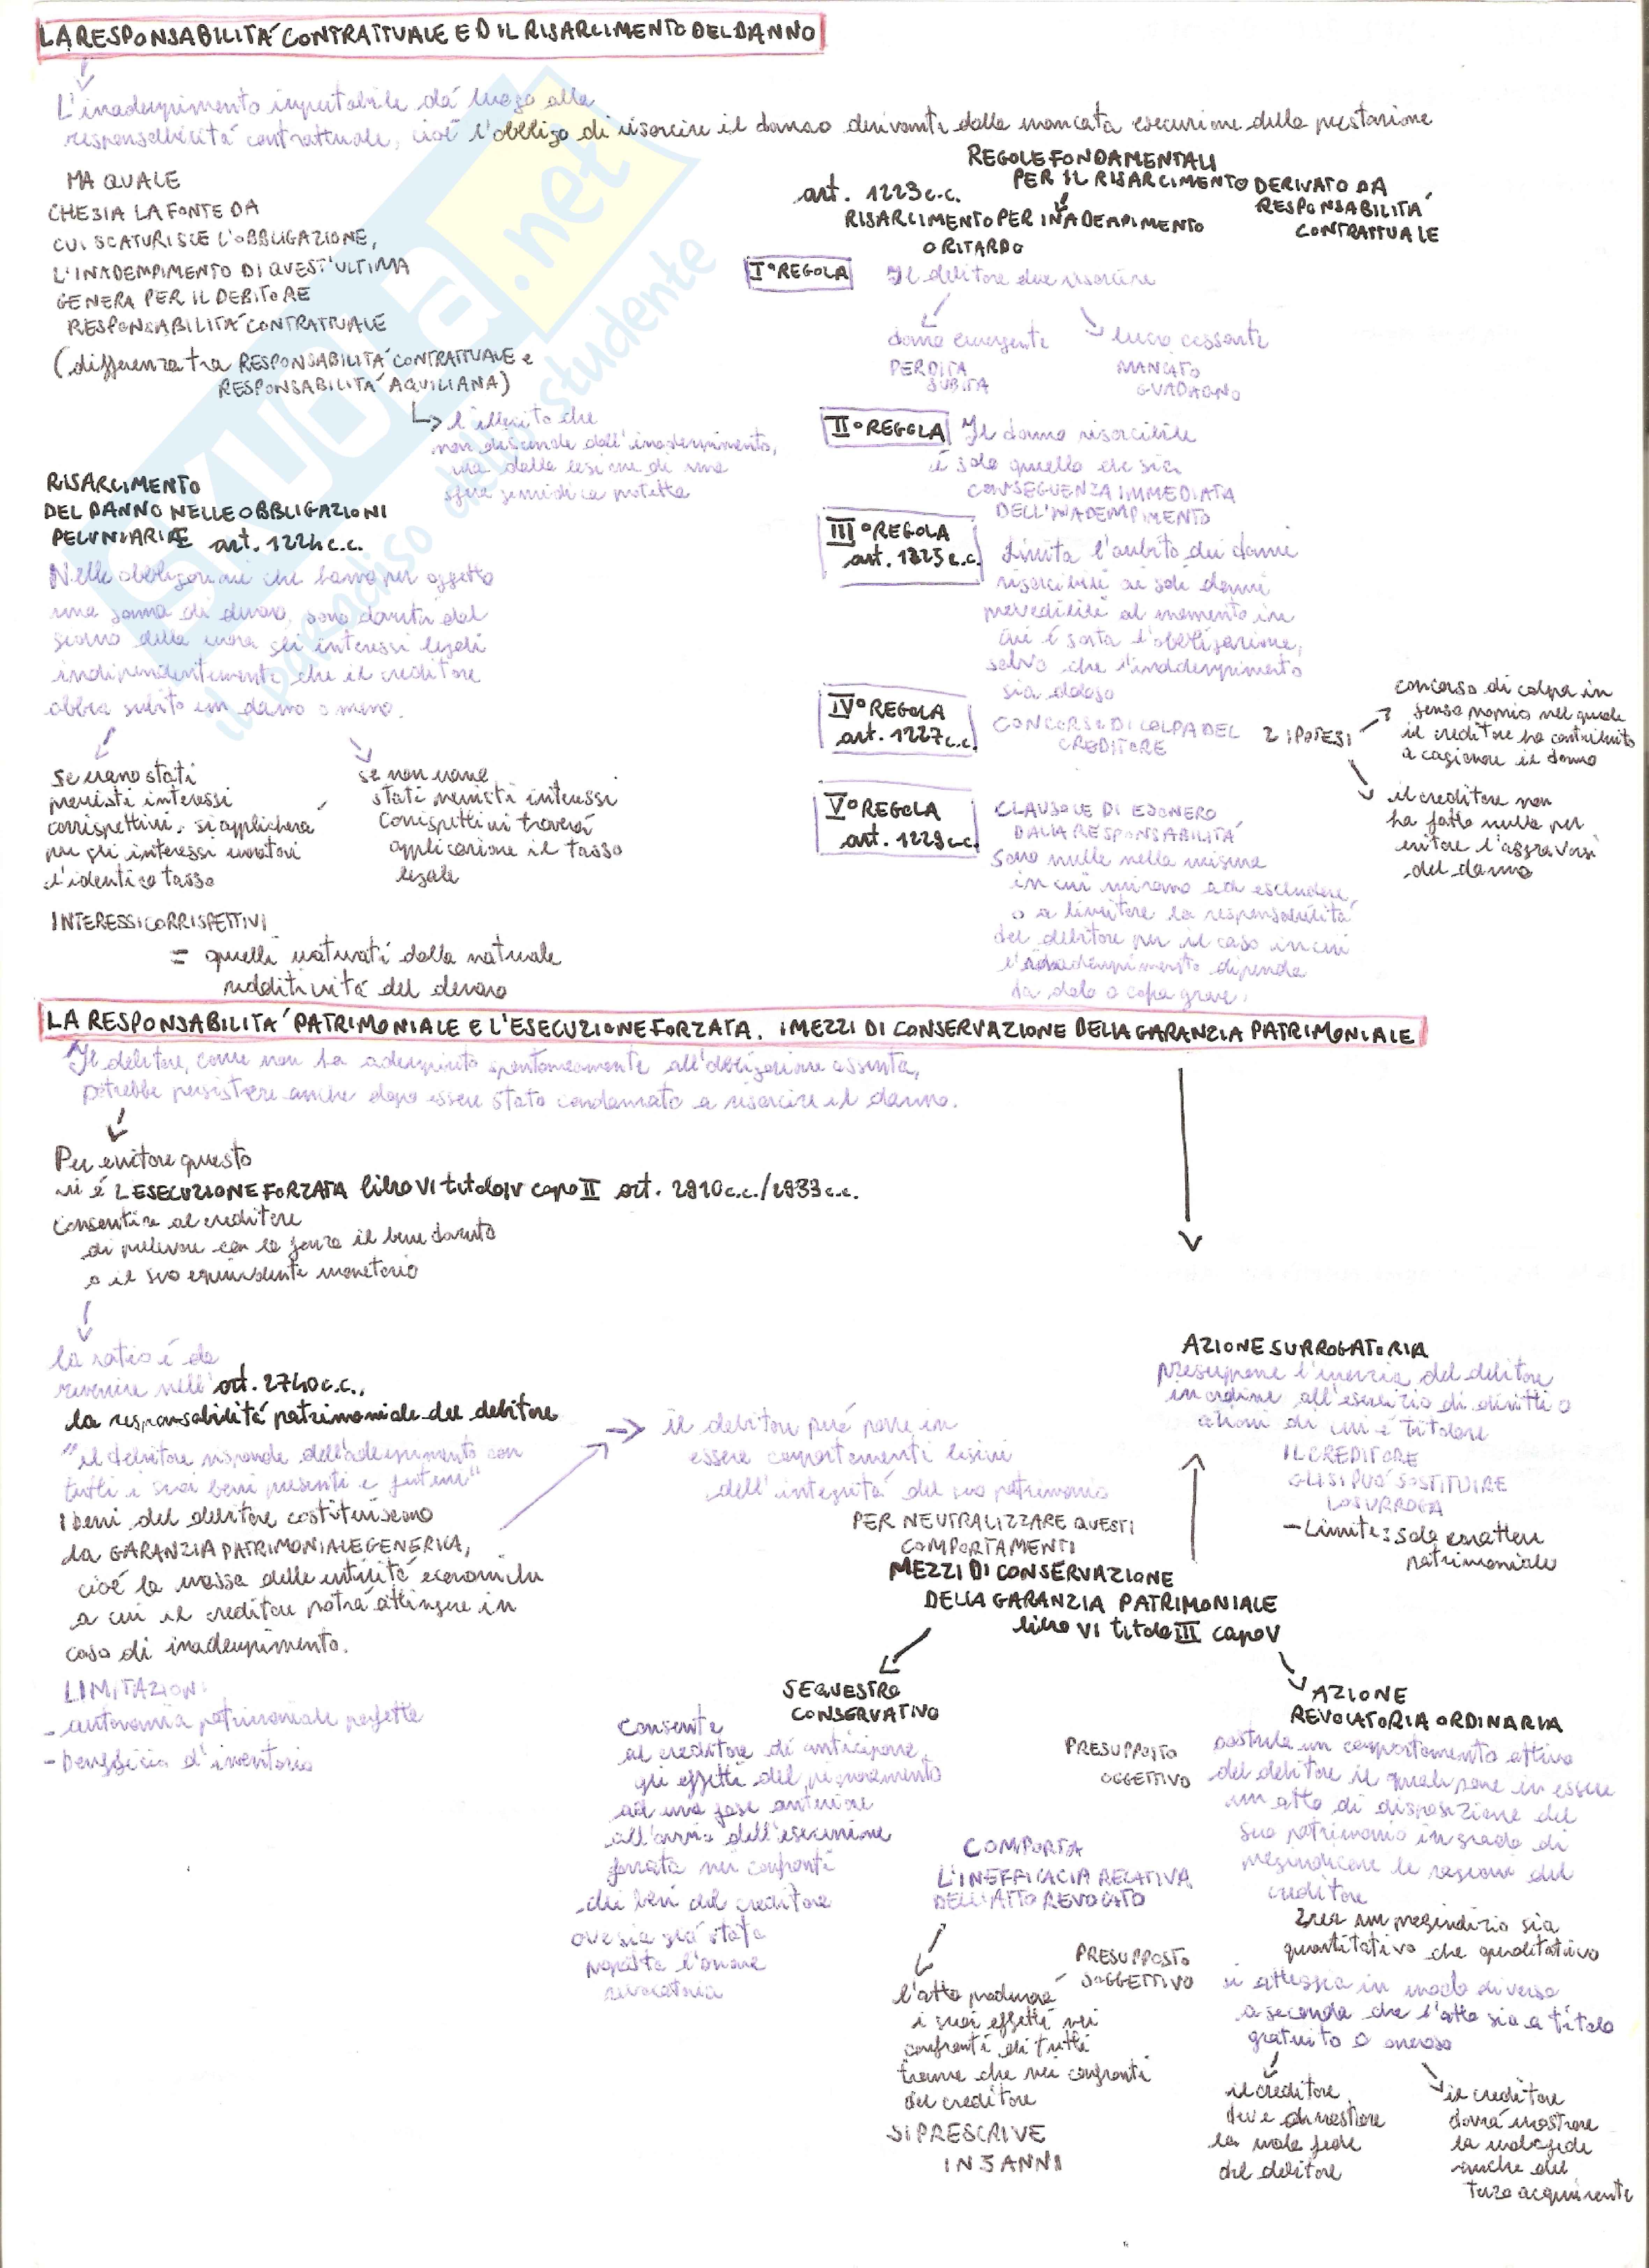 LA RESPONSABILITÁ CONTRATTUALE ED IL RISARCIMENTO DEL DANNO
L'inadempimento imputabile dá luogo alla
responsabilitá contrattuale, cioé l'obbligo di risarcire il danno derivante dalla mancata esecuzione della prestazione
MA QUALE
CHE SIA LA FONTE DA
CUI SCATURISCE L'OBBLIGAZIONE,
L'INADEMPIMENTO DI QUEST'ULTIMA
GENERA PER IL DEBITORE
RESPONSABILITÁ CONTRATTUALE
(differenza tra RESPONSABILITÁ CONTRATTUALE e
RESPONSABILITÁ AQUILIANA)
l'illecito che
non discende dall'inadempimento,
ma dalla lesione di una
sfera giuridica protetta
RISARCIMENTO
DEL DANNO NELLE OBBLIGAZIONI
PECUNIARIE art. 1224 c.c.
Nelle obbligazioni che hanno per oggetto
una somma di denaro, sono dovuti dal
giorno della mora gli interessi legali
indipendentemente che il creditore
abbia subito un danno o meno.
se erano stati
previsti interessi
corrispettivi, si applicherá
per gli interessi moratori
l'identico tasso
se non erano
stati previsti interessi
corrispettivi troverá
applicazione il tasso
legale
INTERESSI CORRISPETTIVI
= quelli maturati dalla naturale
redditivitá del denaro
REGOLE FONDAMENTALI
PER IL RISARCIMENTO DERIVATO DA
RESPONSABILITÁ
CONTRATTUALE
art. 1223 c.c.
RISARCIMENTO PER INADEMPIMENTO
O RITARDO
I° REGOLA Il debitore deve risarcire
danno emergente
PERDITA
SUBITA
lucro cessante
MANCATO
GUADAGNO
II° REGOLA Il danno risarcibile
é solo quello che sia
CONSEGUENZA IMMEDIATA
DELL'INADEMPIMENTO
III° REGOLA
art. 1225 c.c.
limita l'ambito dei danni
risarcibili ai soli danni
prevedibili al momento in
cui é sorta l'obbligazione,
salvo che l'inadempimento
sia doloso
IV° REGOLA
art. 1227 c.c.
CONCORSO DI COLPA DEL
CREDITORE
2 IPOTESI
concorso di colpa in
senso proprio nel quale
il creditore ha contribuito
a cagionare il danno
il creditore non
ha fatto nulla per
evitare l'aggravarsi
del danno
V° REGOLA
art. 1229 c.c.
CLAUSOLE DI ESONERO
DALLA RESPONSABILITÁ
sono nulle nella misura
in cui mirano ad escludere,
o a limitare la responsabilitá
del debitore per il caso in cui
l'inadempimento dipenda
da dolo o colpa grave.
LA RESPONSABILITÁ PATRIMONIALE E L'ESECUZIONE FORZATA. I MEZZI DI CONSERVAZIONE DELLA GARANZIA PATRIMONIALE
Il debitore, come non ha adempiuto spontaneamente all'obbligazione assunta,
potrebbe persistere anche dopo essere stato condannato a risarcire il danno.
Per evitare questo
vi é L'ESECUZIONE FORZATA libro VI titolo IV capo II art. 2910 c.c./2933 c.c.
Consentire al creditore
di prelevare con la forza il bene dovuto
o il suo equivalente monetario
la ratio é da
rinvenire nell'art. 2740 c.c.,
la responsabilitá patrimoniale del debitore
"il debitore risponde dell'adempimento con
tutti i suoi beni presenti e futuri"
I beni del debitore costituiscono
la GARANZIA PATRIMONIALE GENERICA,
cioé la massa delle entitá economiche
a cui il creditore potrá attingere in
caso di inadempimento.
LIMITAZIONI
- autonomia patrimoniale perfetta
- beneficio d'inventario
il debitore puó porre in
essere comportamenti lesivi
dell'integritá del suo patrimonio
PER NEUTRALIZZARE QUESTI
COMPORTAMENTI
MEZZI DI CONSERVAZIONE
DELLA GARANZIA PATRIMONIALE
libro VI titolo III capo V
AZIONE SURROGATORIA
presuppone l'inerzia del debitore
in ordine all'esercizio di diritti o
azioni di cui é titolare
IL CREDITORE
GLI SI PUÓ SOSTITUIRE
LO SURROGA
- Limite: solo carattere
patrimoniale
SEQUESTRO
CONSERVATIVO
Consente
al creditore di anticipare
gli effetti del pignoramento
ad una fase anteriore
all'avvio dell'esecuzione
forzata nei confronti
dei beni del creditore
ove sia giá stata
proposta l'azione
revocatoria
AZIONE
REVOCATORIA ORDINARIA
PRESUPPOSTO
OGGETTIVO
postula un comportamento attivo
del debitore il quale pone in essere
un atto di disposizione del
suo patrimonio in grado di
pregiudicare le ragioni del
creditore
crea un pregiudizio sia
quantitativo che qualitativo
COMPORTA
L'INEFFICACIA RELATIVA
DELL'ATTO REVOCATO
l'atto produrrá
i suoi effetti nei
confronti di tutti
tranne che nei confronti
del creditore
SI PRESCRIVE
IN 5 ANNI
PRESUPPOSTO
SOGGETTIVO
si atteggia in modo diverso
a seconda che l'atto sia a titolo
gratuito o oneroso
il creditore
deve dimostrare
la mala fede
del debitore
il creditore
dovrá mostrare
la malafede
anche del
terzo acquirente
SKUOLA.net
il paradiso dello studente